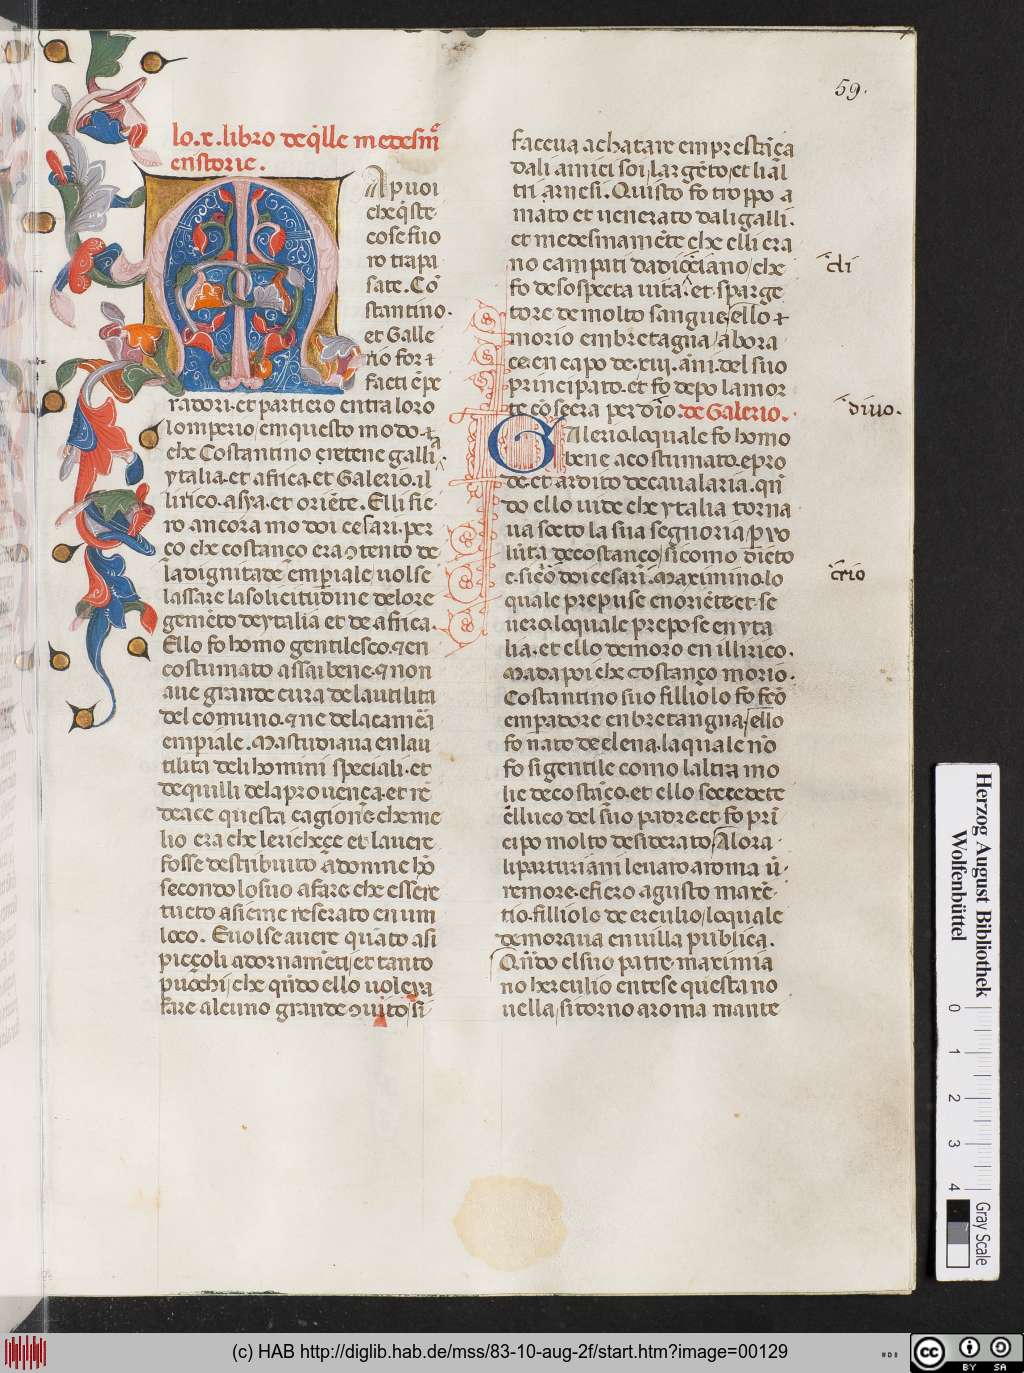 59.
lo.x.libro de q̃lle medesm̃
en storie.
M Apuoi
che q̃ste
cose fuo
ro trapa
sate. Cõ
stantino.
et Galle
rio for
facti ẽpe
radori. et partiero entra loro
lomperio, em questo modo.
che Costantino eretene galli
ytalia. et africa. et Galerio. il
lirico. asya. et oriẽte. Elli fie
ro ancora mo doi cesari. per
ço che costanço era ɔtento de
la dignitade emperiale, uolse
lassare la solicitudine delore
gemẽto de ytalia et de africa.
Ello fo homo gentilesco. en
costumato assai bene. non
aue grande cura de la utilita
del comuno. ne de la camera
emperiale. Ma studiaua en la u
tilita deli homini speciali. et
de quilli de la prouença. et re
deace questa cagione che me
lio era che le richeçe et lauere
fosse destribuito a domne hõ
secondo lo suo afare. che essere
tucto asieme reserato en um
loco. E uolse auere quãto asi
piccoli adornamẽti, et tanto
puochi, che qñdo ello uoleua
fare alcuno grande ɔuito, si
faceua achatare em prestãça
dali amici soi, largẽto, et li al
tri arnesi. Quisto fo troppo a
mato et uenerato dali galli.
et medesmamẽte che elli era
no campati da dioçiano, che
fo de sospecta uita. et sparge
tore de molto sangue, ello
morio em bretagna, abora
ce. en capo de. xiii. ãni. del suo
principato. et fo depo la mor
te cõsecra per dio. de Galerio.
GAlerio. loquale fo homo
bene acostumato. e pro
de. et ardito de caualaria. qñ
do ello uide che ytalia torna
ua socto la sua segnoria, p uo
lũta de costanço, si como dicto
e. si fẽo doi cesari. Maximino. lo
quale prepuse en oriẽte. et se
uero. loquale prepose en yta
lia. et ello demoro en illirico.
Mada poi che costanço morio.
Costantino suo filliolo fo fẽo
empadore en bretangna, ello
fo nato de elena. la quale nõ
fo si gentile como laltra mo
lie de costãço. et ello socedete
ẽlluco del suo padre. et fo prĩ
cipo molto desiderato, Alora
li parturiani leuaro a roma ũ.
remore. e fiero agusto maxẽ
tio. filliolo de erculio, loquale
demoraua en uilla publica.
Qñdo el suo patre. maximia
no herculio entese questa no
uella, si torno a roma mante
cli
diuo.
crio
Herzog August Bibliothek
Wolfenbüttel
0 1 2 3 4
Gray Scale
(c) HAB http://diglib.hab.de/mss/83-10-aug-2f/start.htm?image=00129
cc BY SA